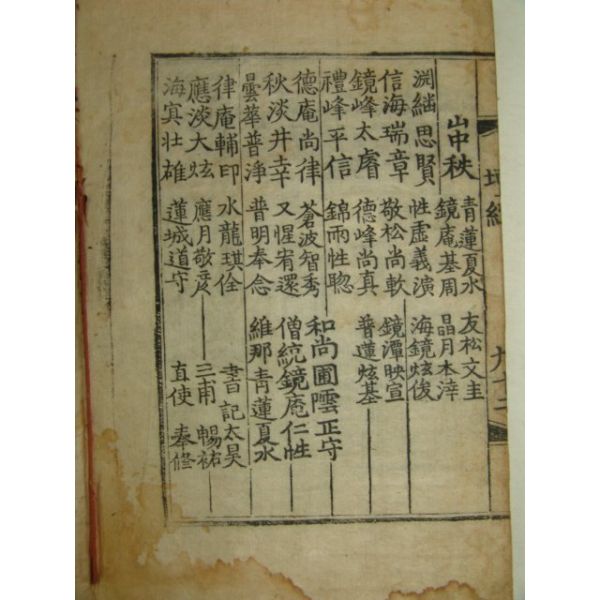 地經 九十二
山中秩 青蓮夏水 友松文圭
鏡庵基周 晶月本淬
思賢 性虛義演 海鏡炫俊
信海瑞章 敬松尚軟 鏡潭映宣
鏡峰太睿 德峰尚真 普蓮炫基
禮峰平信 錦雨性聦 和尚圃雲正守
德庵尚律 蒼波智秀 僧統鏡庵仁性
秋淡井幸 又惺宥還 維那青蓮夏水
曇華普淨 普明奉念
律庵輔印 水龍琪佺 書記太昊
應淡大炫 應月敬彦 三甫暢祐
海㝠壯雄 蓮城道守 直使奉修